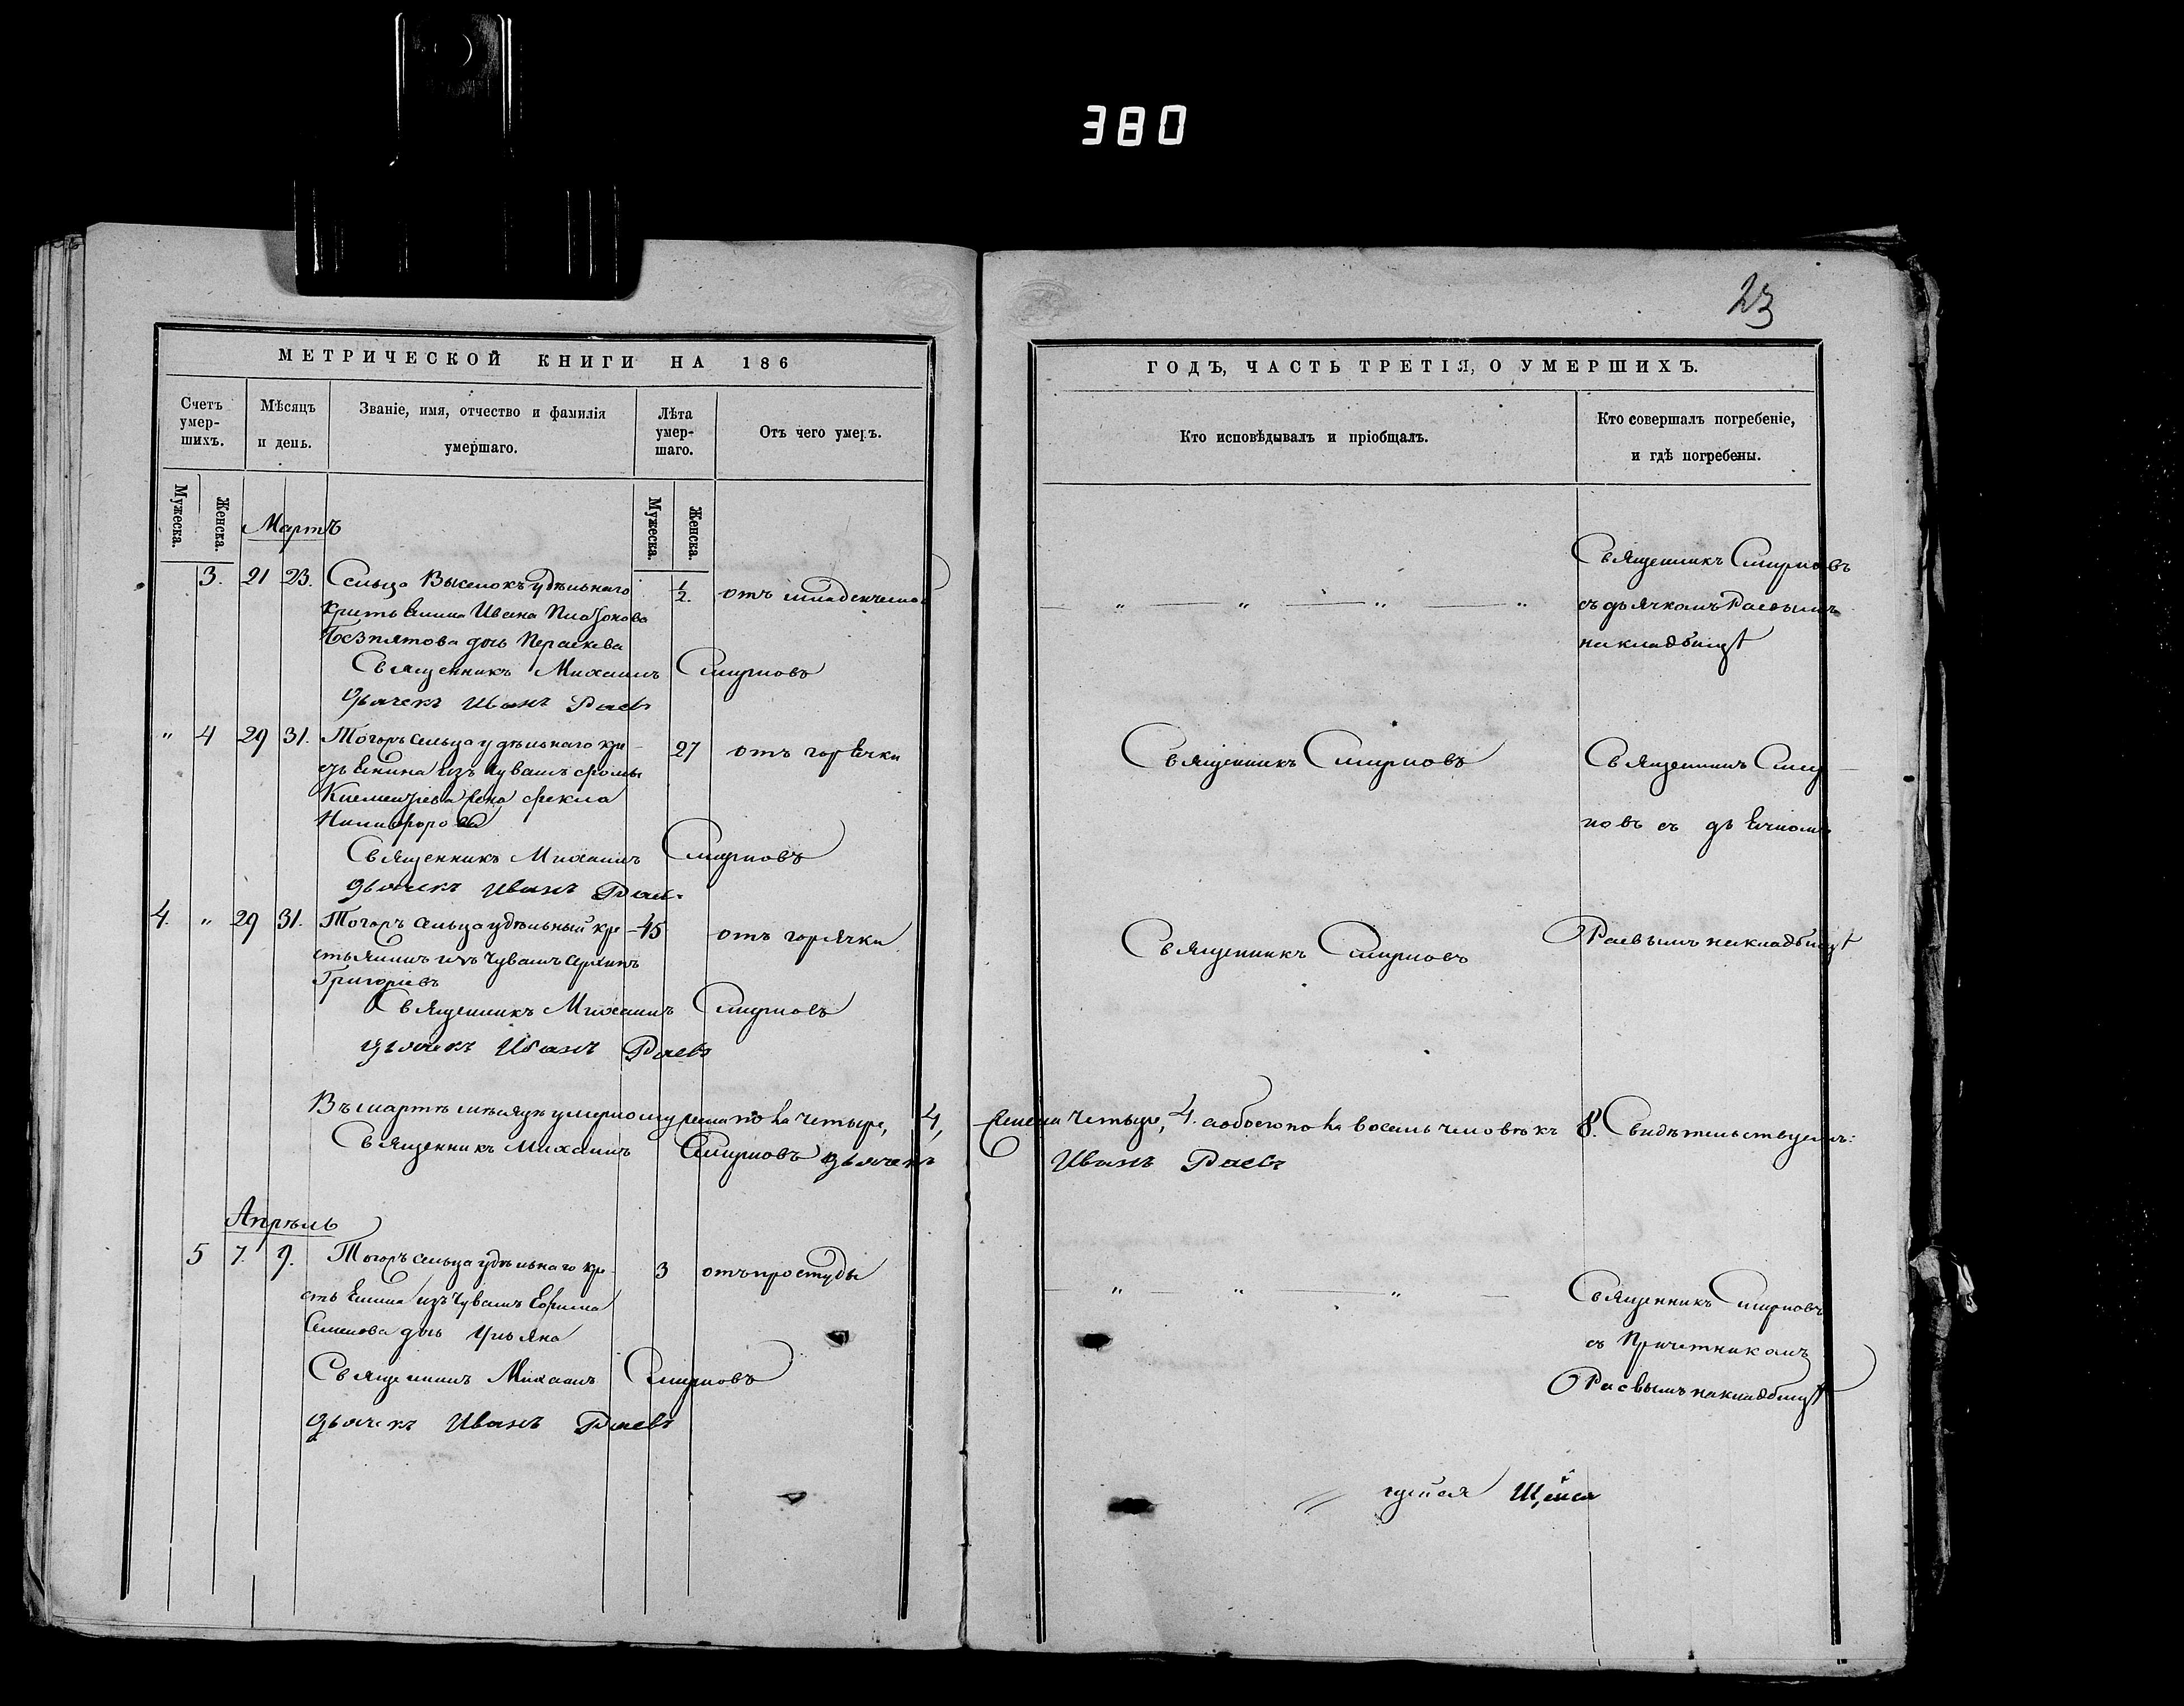 380
23
МЕТРИЧЕСКОЙ КНИГИ НА 186
Счетъ умер-шихъ.
Мѣсяцъ и день.
Званіе, имя, отчество и фамилія умершаго.
Лѣта умер-шаго.
Отъ чего умеръ.
Мужеска.
Женска.
Мужеска.
Женска.
Мартъ
3. 21 23. Сельца Выселокъ удѣльнаго 1/2. отъ младенческой
кресть янина Ивана
Безпятова дочь Пераскева
Священникъ Михаилъ Смирновъ
дьячекъ Иванъ Раевъ
" 4 29 31. Тогожъ сельца удѣльнаго кре- 27 отъ горячки
стьянина изъ чувашъ Фомы
Климентьева жена Фекла
Никифорова
Священникъ Михаилъ Смирновъ
дьячекъ Иванъ Раевъ
4. " 29 31. Тогожъ сельца удѣльный кре- 45 отъ горячки
стьянинъ изъ чувашъ Архипъ
Григорьевъ
Священникъ Михаилъ Смирновъ
дьячекъ Иванъ Раевъ
Въ мартѣ мѣсяцѣ умерло мужеска пола четыре, 4,
Священникъ Михаилъ Смирновъ дьячекъ
Апрѣль
5 7. 9. Тогожъ сельца удѣльнаго кре- 3 отъ простуды
стьянина изъ чувашъ Ефима
Семенова дочь Ульяна
Священникъ Михаилъ Смирновъ
дьячекъ Иванъ Раевъ
ГОДЪ, ЧАСТЬ ТРЕТІЯ, О УМЕРШИХЪ.
Кто исповѣдывалъ и пріобщалъ.
Кто совершалъ погребеніе, и гдѣ погребены.
Священникъ Смирновъ
" " " " съ дьячкомъ Раевымъ
на кладбищѣ
Священникъ Смирновъ Священникъ Смир-
новъ съ дьячкомъ
Священникъ Смирновъ Раевымъ на кладбищѣ
женска четыре, 4. а обоего пола восемь человѣкъ 8. Свидѣтельствуемъ:
Иванъ Раевъ
" " " Священникъ Смирновъ
съ Причетникомъ
Раевымъ на кладбищѣ